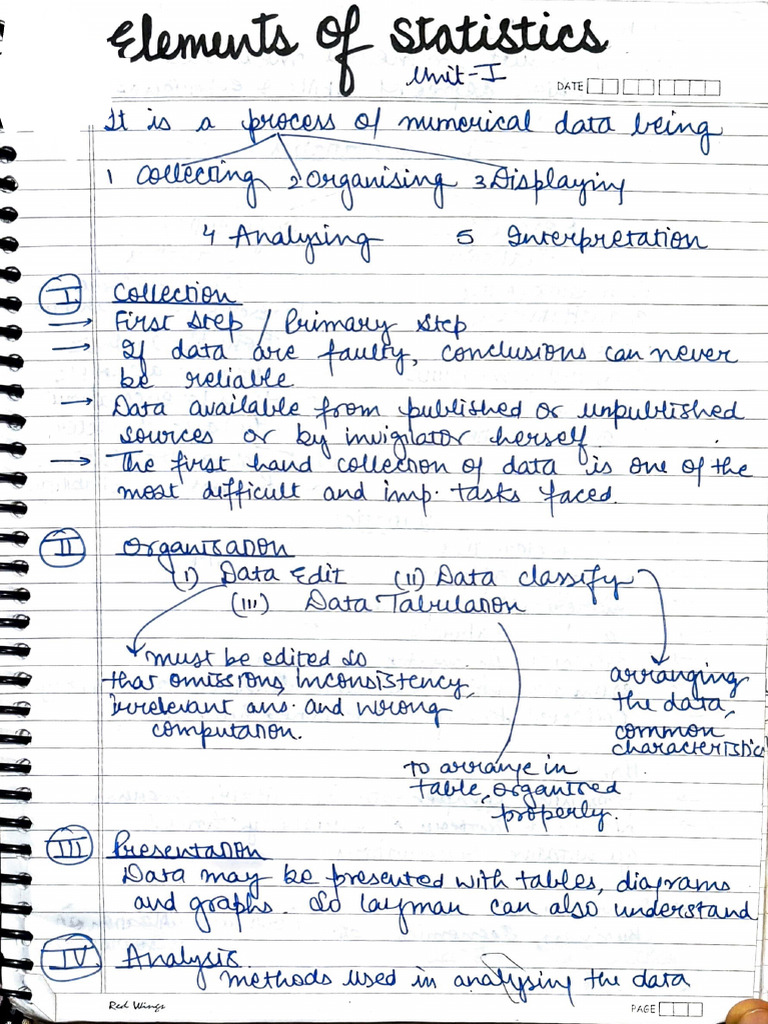 Elements of Statistics
Unit-I
DATE
It is a process of numerical data being
1 Collecting 2 Organising 3 Displaying
4 Analysing 5 Interpretation
I. Collection
→ First step / Primary step
→ If data are faulty, conclusions can never
be reliable
→ Data available from published or unpublished
sources or by invigilator herself
→ The first hand collection of data is one of the
most difficult and imp. tasks faced.
II Organisation
(i) Data Edit (ii) Data classify
(iii) Data Tabulation
must be edited so
that omissions, inconsistency,
irrelevant ans. and wrong
computation.
arranging
the data,
common
characteristic
to arrange in
table, organised
properly.
III Presentation
Data may be presented with tables, diagrams
and graphs. So layman can also understand
IV Analysis
methods used in analysing the data
Red Wings
PAGE